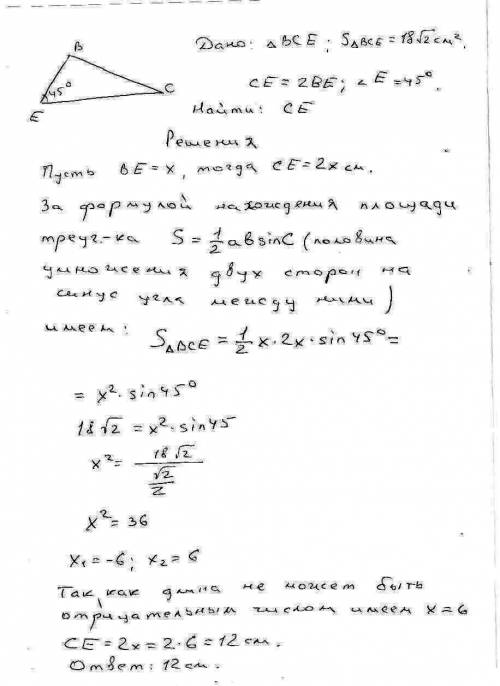 Дано: △BCE; S△BCE = 18√2 см².
CE = 2BE; ∠E = 45°.
Найти: CE
B
45°
C
E
Решения
Пусть BE = x, тогда CE = 2x см.
За формулой нахождения площади
треуг.-ка S = 1/2 ab sin C (половина
умножения двух сторон на
синус угла между ними)
имеем: S△BCE = 1/2 x · 2x · sin 45° =
= x² · sin 45°
18√2 = x² · sin 45
x² = 18√2 / (√2/2)
x² = 36
x₁ = -6; x₂ = 6
Так, как длина не может быть
отрицательным числом имеем x = 6
CE = 2x = 2 · 6 = 12 см.
Ответ: 12 см.